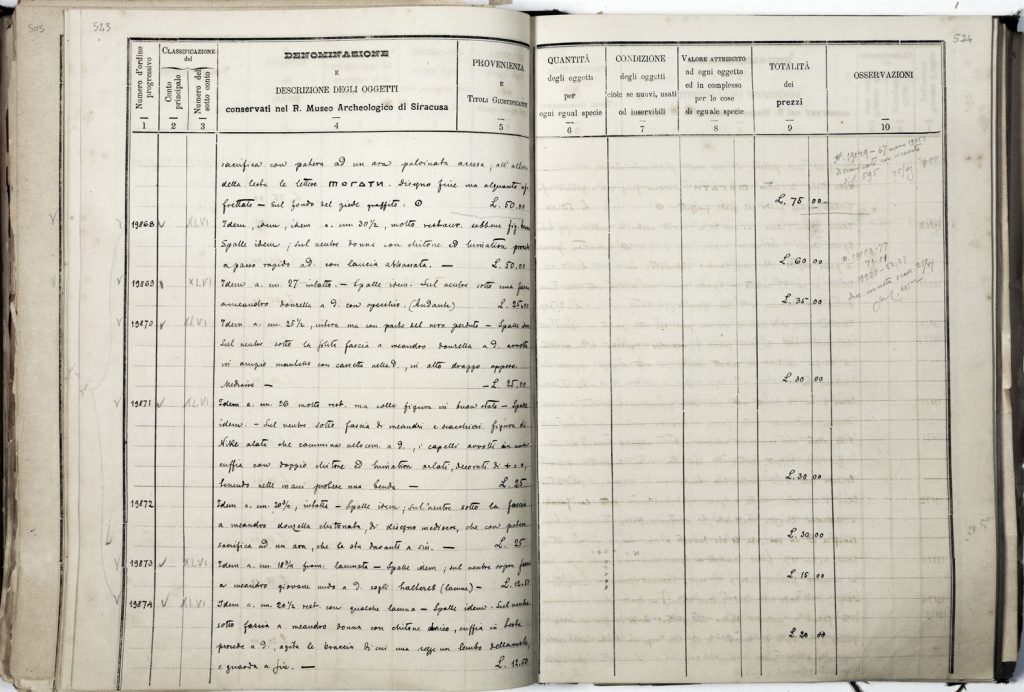 505
523
524
Numero d'ordine progressivo
CLASSIFICAZIONE
del
Conto principale
Numero del sotto conto
DENOMINAZIONE
E
DESCRIZIONE DEGLI OGGETTI
conservati nel R. Museo Archeologico di Siracusa
PROVENIENZA
E
TITOLI GIUSTIFICATIVI
QUANTITÀ
degli oggetti
per
ogni egual specie
CONDIZIONE
degli oggetti
cioè: se nuovi, usati
od inservibili
VALORE ATTRIBUITO
ad ogni oggetto
ed in complesso
per le cose
di eguale specie
TOTALITÀ
dei
prezzi
OSSERVAZIONI
1 2 3 4 5 6 7 8 9 10
sacrifica con patera ad un ara palvinata accesa; all'altezza
della testa le lettere ΠΟΓΑΤΙ. Disegno fine ma alquanto af-
frettato – Sul fondo del piede graffito: L. 50.00
L. 75 00
19868 XLVI Idem, idem, idem a. cm 30 1/2, molto restaur. sebbene
Spalle idem; sul ventre donna con chitone ed himation procede
a passo rapido a d. con lancia abbassata. — L. 50.00
L. 60 00
19869 XLVI Idem a. cm. 27 intatto. – Spalle idem. Sul ventre sotto una fascia
a meandro donzella a d. con specchio. (Andante) L. 25.00
L. 35 00
19870 XLVI Idem a. cm. 25 1/2, intera ma con parte del nero perduto – Spalle idem
Sul ventre sotto la solita fascia a meandro donzella a d. avvolta
in ampio mantello con cassetta nella d., in alto drappo appeso.
Mediocre — L. 25.00
L. 30 00
19871 XLVI Idem a. cm. 26 molto rest. ma colla figura in buon stato – Spalle
idem. – Sul ventre sotto fascia di meandri e scacchieri figura di
Nike alata che cammina velocem. a d., i capelli avvolti in una
cuffia con doppio chitone ed himation orlati, decorati di
tenendo nelle mani protese una benda — L. 25
L. 30 00
19872 Idem a. cm. 20 3/4, intatto – Spalle idem; sul ventre sotto la fascia
a meandro donzella chitonata, di disegno mediocre, che con patera
sacrifica ad un ara, che le sta davanti a sin. — L. 25
L. 30 00
19873 XLVI Idem a. cm. 18 3/4 fram. lacunata – Spalle idem; sul ventre sopra fascia
a meandro giovane nudo a d. cogli halteres (lacune) – L. 12.50
L. 15 00
19874 XLVI Idem a. cm. 20 1/2 rest. con qualche lacuna – Spalle idem. Sul ventre
sotto fascia a meandro donna con chitone dorico, cuffia in testa
procede a d., agita le braccia di cui una regge un lembo
e guarda a sin. — L. 12.50
L. 20 00